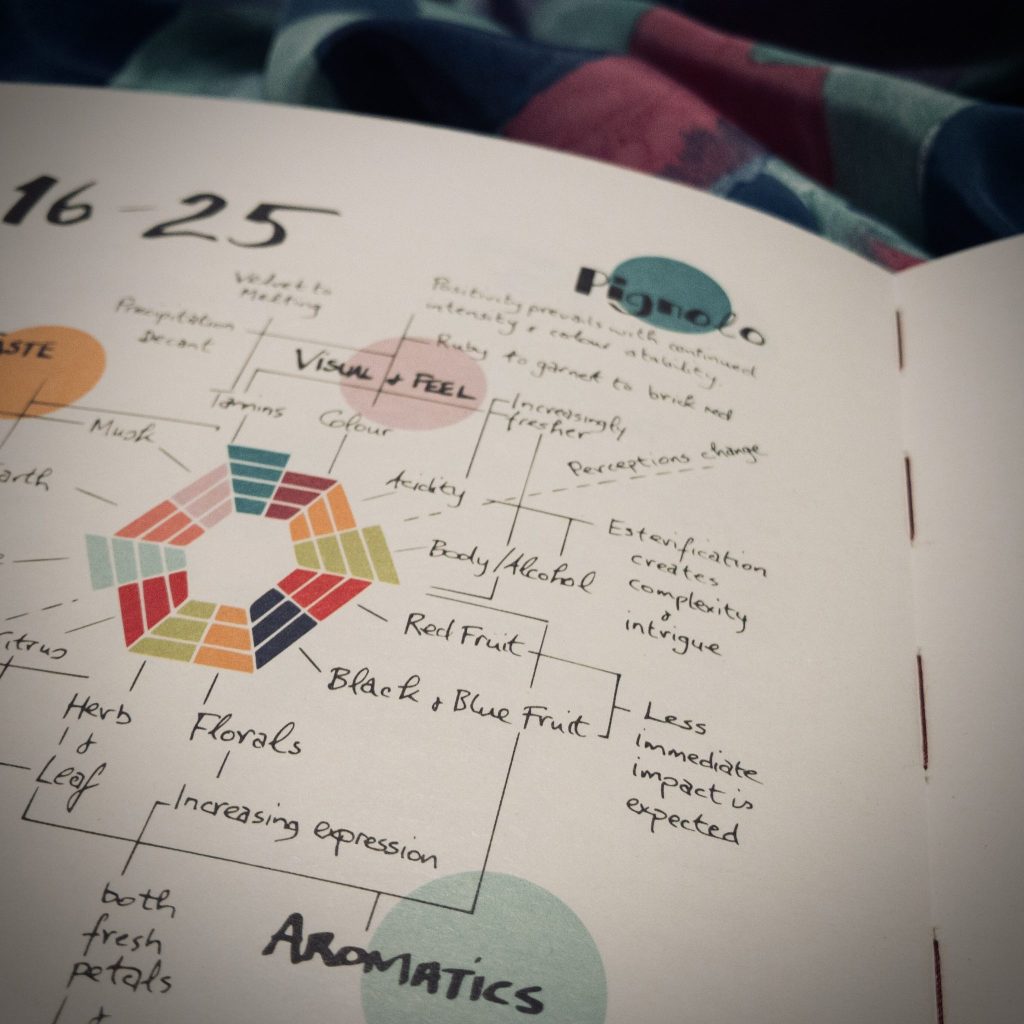 16-25
Pignolo
Velvet to
Melting
Precipitation
Decant
Positivity prevails with continued
intensity & colour stability.
Ruby to garnet to brick red
VISUAL & FEEL
Tannins
Colour
Increasingly
fresher
Perceptions change
Musk
Acidity
Body/Alcohol
Esterification
creates
complexity
&
intrigue
Red Fruit
Black & Blue Fruit
Less
immediate
impact is
expected
Herb
&
Leaf
Florals
Increasing expression
both
fresh
petals
&
AROMATICS